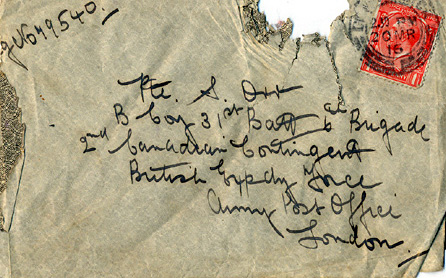 Pte. S. Orr
B Coy 31st Batt 6 Brigade
2nd Canadian Contingent
British Expdy Force
Army Post Office
London